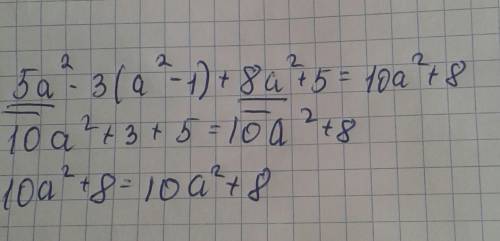 5a² - 3(a² - 1) + 8a² + 5 = 10a² + 8
10a² + 3 + 5 = 10a² + 8
10a² + 8 = 10a² + 8